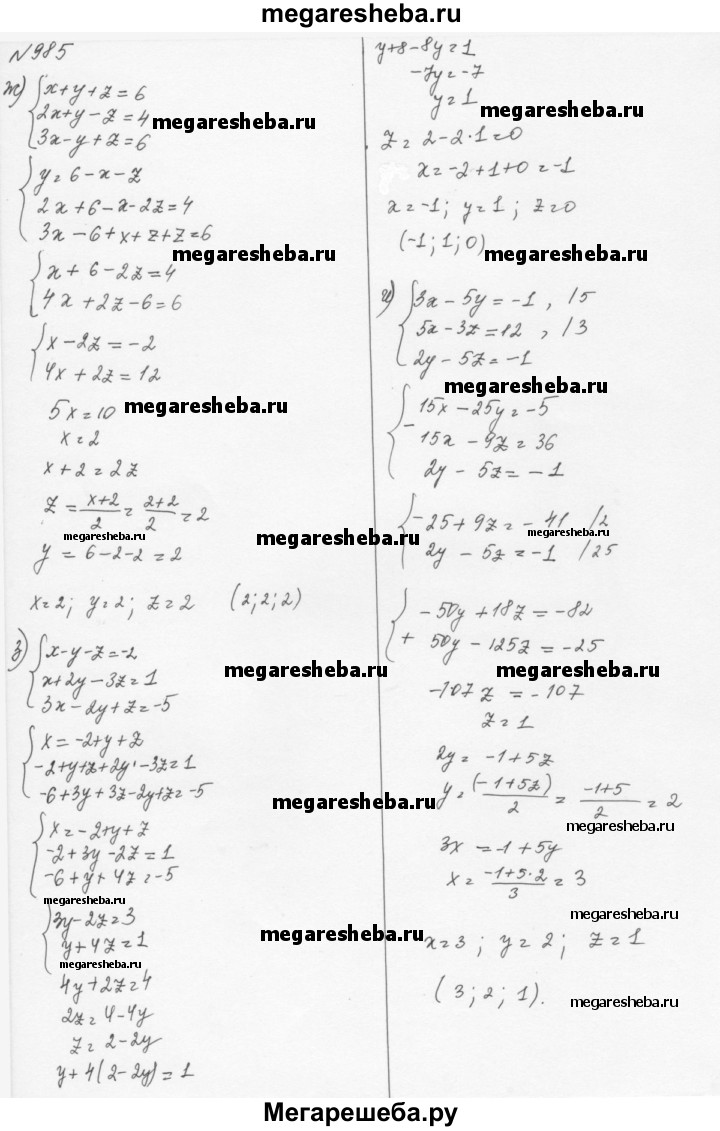 megaresheba.ru
№985
ж) { x+y+z=6
2x+y-z=4
3x-y+z=6
megaresheba.ru
{ y=6-x-z
2x+6-x-2z=4
3x-6+x+z+z=6
megaresheba.ru
{ x+6-2z=4
4x+2z-6=6
{ x-2z=-2
4x+2z=12
5x=10
megaresheba.ru
x=2
x+2=2z
z = (x+2)/2 = (2+2)/2 = 2
megaresheba.ru
megaresheba.ru
y = 6-2-2 = 2
x=2; y=2; z=2 (2;2;2)
з) { x-y-z=-2
x+2y-3z=1
3x-2y+z=-5
megaresheba.ru
{ x=-2+y+z
-2+y+z+2y-3z=1
-6+3y+3z-2y+z=-5
megaresheba.ru
{ x=-2+y+z
-2+3y-2z=1
-6+y+4z=-5
megaresheba.ru
{ 3y-2z=3
y+4z=1
megaresheba.ru
megaresheba.ru
4y+2z=4
2z=4-4y
z=2-2y
y+4(2-2y)=1
y+8-8y=1
-7y=-7
y=1
megaresheba.ru
z=2-2·1=0
x=-2+1+0=-1
x=-1; y=1; z=0
(-1;1;0)
megaresheba.ru
и) { 3x-5y=-1, /5
5x-3z=12, /3
2y-5z=-1
megaresheba.ru
- { 15x-25y=-5
15x-9z=36
2y-5z=-1
{ -25+9z=-41 /2
megaresheba.ru
2y-5z=-1 /25
+ { -50y+18z=-82
50y-125z=-25
megaresheba.ru
-107z=-107
z=1
2y=-1+5z
y = (-1+5z)/2 = (-1+5)/2 = 2
megaresheba.ru
3x=-1+5y
x = (-1+5·2)/3 = 3
megaresheba.ru
x=3; y=2; z=1
(3;2;1).
megaresheba.ru
Мегарешеба.ру